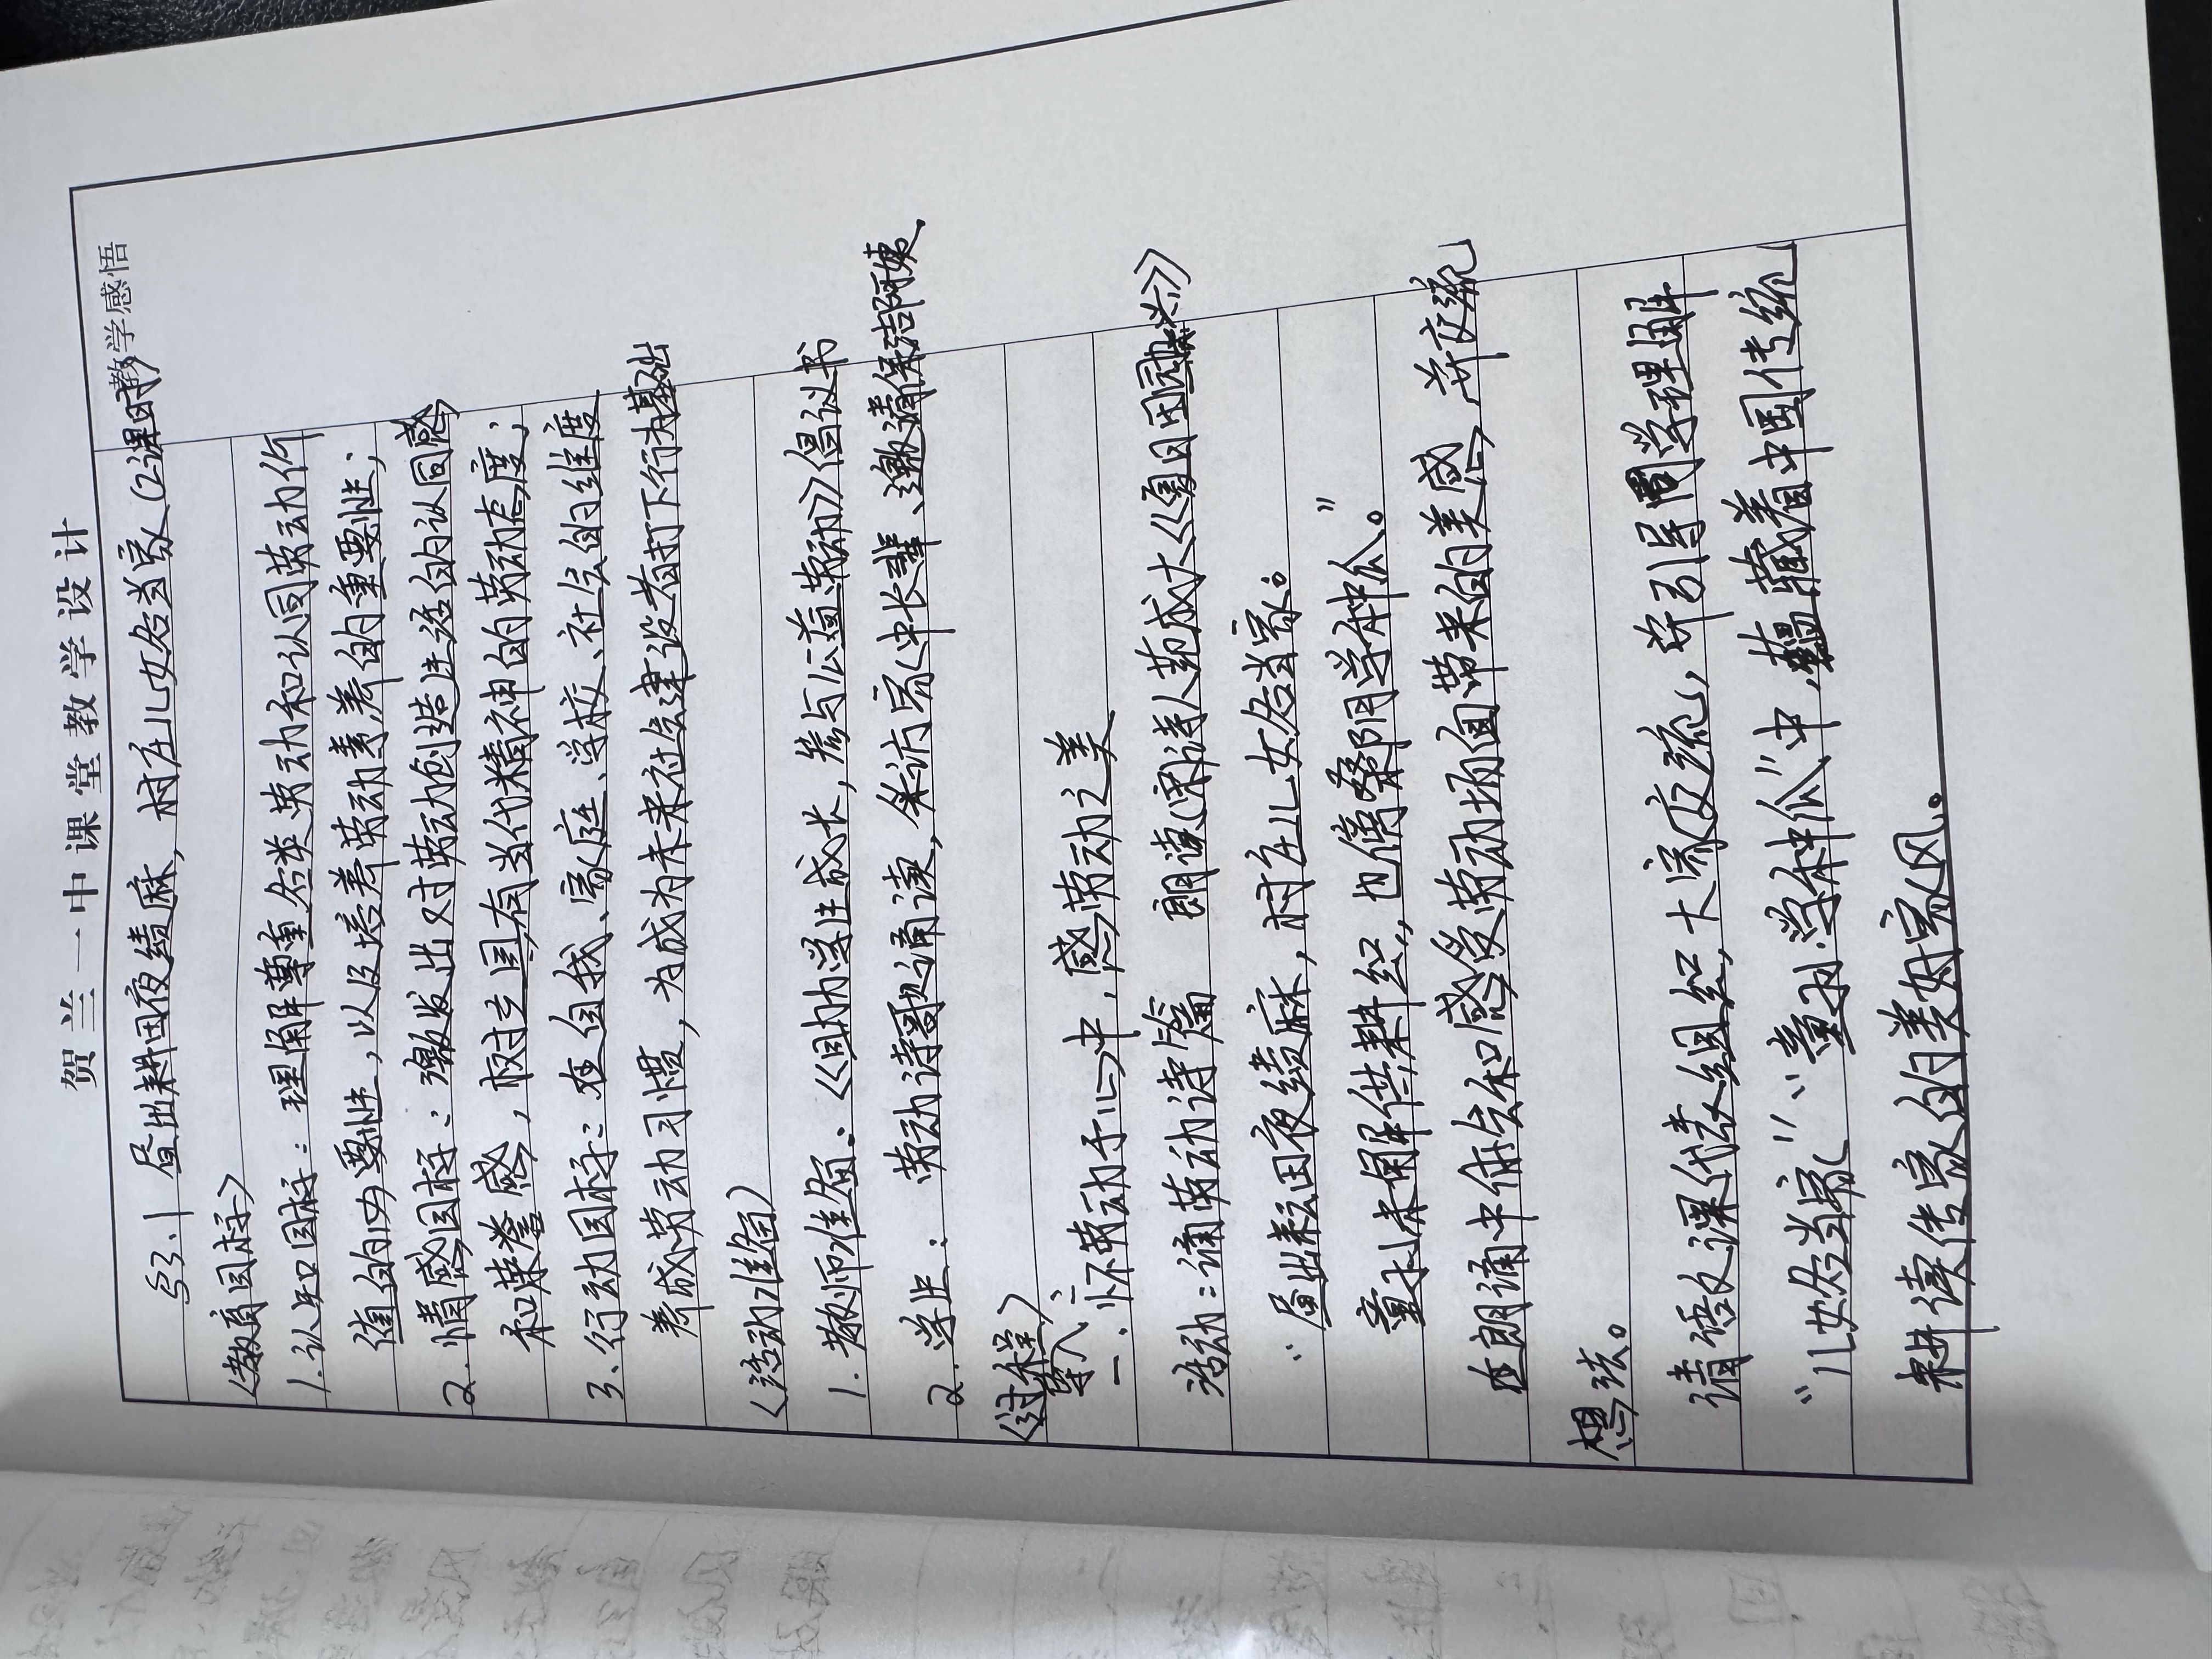 贺兰一中课堂教学设计
教学感悟
§3.1 昼出耕田夜绩麻，村庄儿女各当家(2课时)
〈教育目标〉
1.认知目标：理解尊重各类劳动和认同劳动价
值的必要性，以及培养劳动素养的重要性；
2.情感目标：激发出对劳动创造生活的认同感
和荣誉感，树立具有当代精神的劳动态度；
3.行动目标：在自我、家庭、学校、社会的维度
养成劳动习惯，为成为未来社会建设者打下行为基础
〈活动准备〉
1.教师准备：《助力学生成长，参与公益劳动》倡议书
2.学生：劳动诗歌诵读，采访家中长辈、邀请保洁阿姨、
〈过程〉
导入：
一.怀劳动于心中，感劳动之美
活动：诵劳动诗篇 朗读(宋)诗人范成大《夏日田园杂兴》
“昼出耘田夜绩麻，村庄儿女各当家。
童孙未解供耕织，也傍桑阴学种瓜。”
在朗诵中体会和感受劳动场面带来的美感，并交流
想法。
请语文课代表组织大家交流，并引导同学理解
“儿女各当家”“童孙学种瓜”中，蕴藏着中国传统
耕读传家的美好家风。